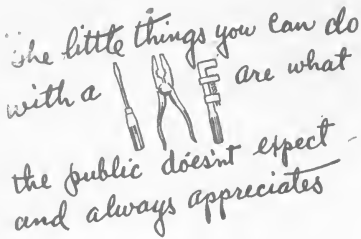 The little things you can do
with a are what
the public does'nt expect -
and always appreciates